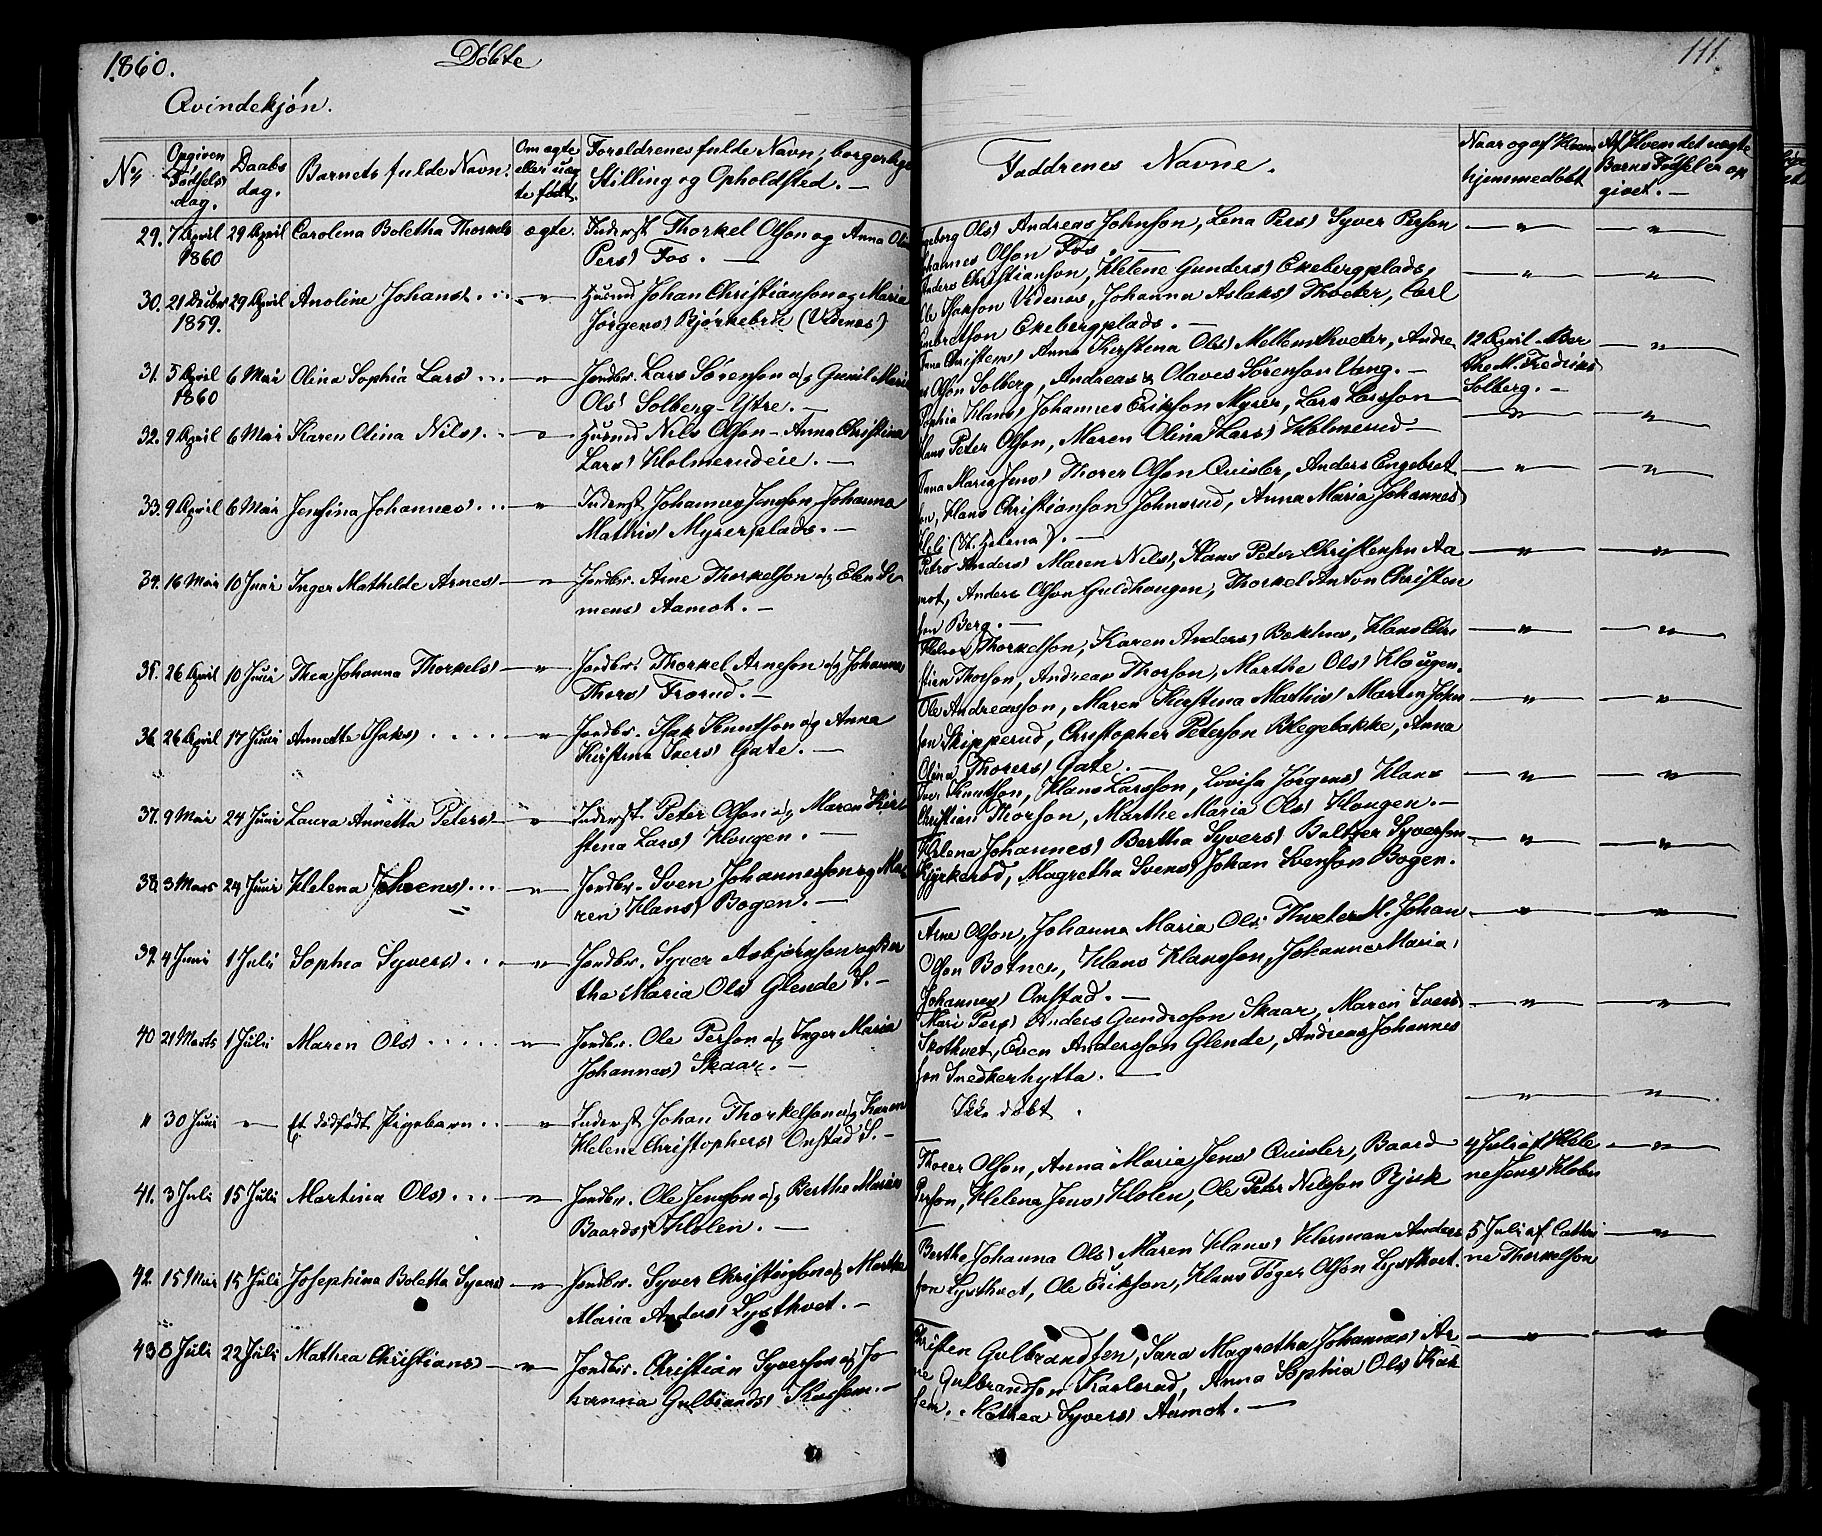 1860. Döbte 111.
Qvindekjön.
No Opgiven Födselsdag. Daabsdag. Barnets fulde Navn. Om ægte eller uægte født. Foreldrenes fulde Navn, borgerlige Stilling og Opholdsted. — Faddrenes Navne. Naar og af Hvem hjemmedöbt Af Hvem det uægte Barns Födsel er opgivet. —
29. 7 April 1860 29 April Carolina Boletha Thorkels ægte. Inderst Thorkel Olson og Anna
Pers) Fos. — Ols) Andreas Johnson, Lena Pers) Syver Person
Olson Fos. —
30. 21 Decbr 1859. 29 April Anoline Johans) Husmd Johan Christianson og Maria
Jörgens) Bjørkebek (Vidnes) Christianson, Helene Gunders) Ekebergplads,
Isakson Vidnes, Johanna Aslaks) Thveter, Carl
Ekebergplads. —
31. 5 April 1860 6 Mai Olina Sophia Lars) Jordbr. Lars Sörenson og Gunil Maria
Ols) Solberg-Ystre. — Christens) Anna Kirstina Ols) Mellemthveter, Andre
Olson Solberg, Andreas & Olaves Sörenson Vang. — 12 April Ber
the M. Fredriks
Solberg. —
32. 9 April 6 Mai Karen Olina Nils) Husmd Nils Olson – Anna Christina
Lars) Holmerudeie. — Sophia Hans) Johannes Erikson Myrer, Lars Larsson
Hans Peter Olson, Maren Olina Lars) Holmerud —
33. 9 April 6 Mai Josefina Johannes) Inderst Johannes Jensson – Johanna
Mathis) Myrerplads. — Anna Maria Jens) Thorer Olson Quisler, Anders Engebret
son, Hans Christianson Johnsrud, Anna Maria Johannes)
(St. Helena). —
34. 16 Mai 10 Juni Inger Mathilde Arnes) Jordbr. Arne Thorkelson og Elen Si
mens) Aamot. — Anders) Maren Nils) Hans Peter Christensen Aa
mot, Anders Olson Guldhaugen, Thorkel Anton Christen
sen Berg. —
35. 26 April 10 Juni Thea Johanna Thorkels) Jordbr. Thorkel Arneson og Johanna
Thors) Frorud. — Thorkelson, Karen Anders) Hans Chri
stian Thorson, Andreas Thorson, Marthe Ols) Haugen.
36. 26 April 17 Juni Annette Isaks) Jordbr. Isak Knutson og Anna
Kirstina Ivers) Gate. — Ole Andreasson, Maren Kirstina Mathis) Marten John
son Skipperud, Christopher Peterson Blegebakke, Anna
Olina Thorers) Gate. —
37. 9 Mai 24 Juni Laura Annetta Peters) Inderst Peter Olson og Maren Kir
stina Lars) Haugen. — Iver Knutson, Hans Larsson, Lovisa Jörgens) Hans
Christian Thorson, Marthe Maria Ols) Haugen. —
38. 3 Marts 24 Juni Helena Svens) Jordbr. Sven Johannesson og Ma
ren Hans) Bogen. — Helena Johannes) Bertha Syvers) Baltser Syverson
Magretha Svens) Johan Svenson Bogen.
39. 4 Juni 1 Juli Sophia Syvers) Jordbr. Syver Asbjörnson og Ber
the Maria Ols) Glende S. — Arne Olson, Johanna Maria Ols) Thveter M. Johan
Olson Botner, Hans Hansson, Johanne Maria
Johannes) Onstad. —
40 21 Marts 1 Juli Maren Ols) Jordbr. Ole Person og Inger Maria
Johannes) Skaar. — Mari Pers) Anders Gunderson Skaar, Maren Ivers)
Skothvet, Even Andersson Glende, Andreas Johannes
son Snedkerhytta. —
" 30 Juni Et dödfödt Pigebarn Inderst Johan Thorkelson og Karen
Helene Christophers) Onstad S. — Ikke döbt.
41. 3 Juli 15 Juli Martina Ols) Jordbr. Ole Jensson og Berthe Maria
Baards) Holen. — Thorer Olson, Anna Maria Jens) Quisler, Baard
Person, Helena Jens) Holen, Ole Peter Nilsson Bjerk 4 Juli af Hele
ne Jens) Holen
42. 15 Mai 15 Juli Josephina Boletta Syvers) Jordbr. Syver Christianson og Marthe
Maria Anders) Lysthvet. — Berthe Johanna Ols) Maren Hans) Herman Anders
son Lysthvet, Ole Erikson, Hans Töger Olson Lysthvet. 5 Juli af Cathri
ne Thorkelson
43 8 Juli 22 Juli Mathea Christians) Jordbr. Christian Syverson og Jo
hanna Gulbrands) — Christen Gulbrandsen, Sara Magretha Johannes) Ar
ne Gulbrandsen Karlsrud, Anna Sophia Ols)
Mathea Syvers) Aamot. —